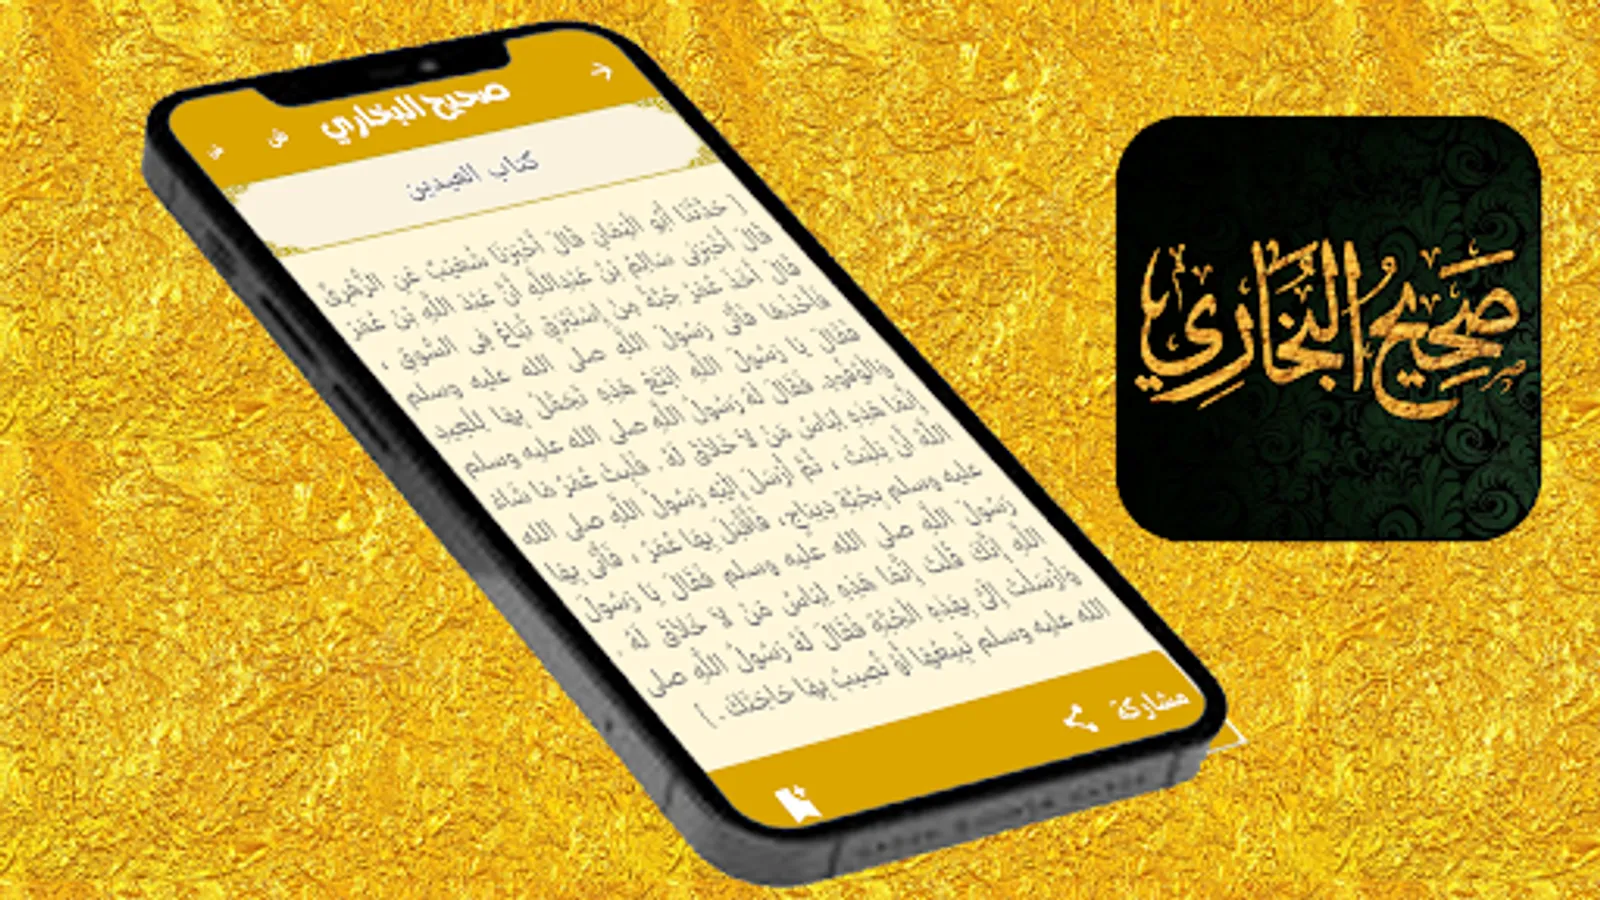 صحيح البخاري
كتاب العيدين
[ حَدَّثَنَا أَبُو الْيَمَانِ قَالَ أَخْبَرَنَا شُعَيْبٌ عَنِ الزُّهْرِىِّ
قَالَ أَخْبَرَنِى سَالِمُ بْنُ عَبْدِاللَّهِ أَنَّ عَبْدَ اللَّهِ بْنَ عُمَرَ
قَالَ أَخَذَ عُمَرُ جُبَّةً مِنْ إِسْتَبْرَقٍ تُبَاعُ فِى السُّوقِ ،
فَأَخَذَهَا فَأَتَى رَسُولَ اللَّهِ صلى الله عليه وسلم
فَقَالَ يَا رَسُولَ اللَّهِ ابْتَعْ هَذِهِ تَجَمَّلْ بِهَا لِلْعِيدِ
وَالْوُفُودِ. فَقَالَ لَهُ رَسُولُ اللَّهِ صلى الله عليه وسلم
إِنَّمَا هَذِهِ لِبَاسُ مَنْ لاَ خَلاَقَ لَهُ . فَلَبِثَ عُمَرُ مَا شَاءَ
اللَّهُ أَنْ يَلْبَثَ ، ثُمَّ أَرْسَلَ إِلَيْهِ رَسُولُ اللَّهِ صلى الله
عليه وسلم بِجُبَّةِ دِيبَاجٍ ، فَأَقْبَلَ بِهَا عُمَرُ ، فَأَتَى بِهَا
رَسُولَ اللَّهِ صلى الله عليه وسلم فَقَالَ يَا رَسُولَ
اللَّهِ إِنَّكَ قُلْتَ إِنَّمَا هَذِهِ لِبَاسُ مَنْ لاَ خَلاَقَ لَهُ .
وَأَرْسَلْتَ إِلَىَّ بِهَذِهِ الْجُبَّةِ فَقَالَ لَهُ رَسُولُ اللَّهِ صلى
الله عليه وسلم تَبِيعُهَا أَوْ تُصِيبُ بِهَا حَاجَتَكَ . ]
مشاركة
صَحِيحُ البُخَارِي